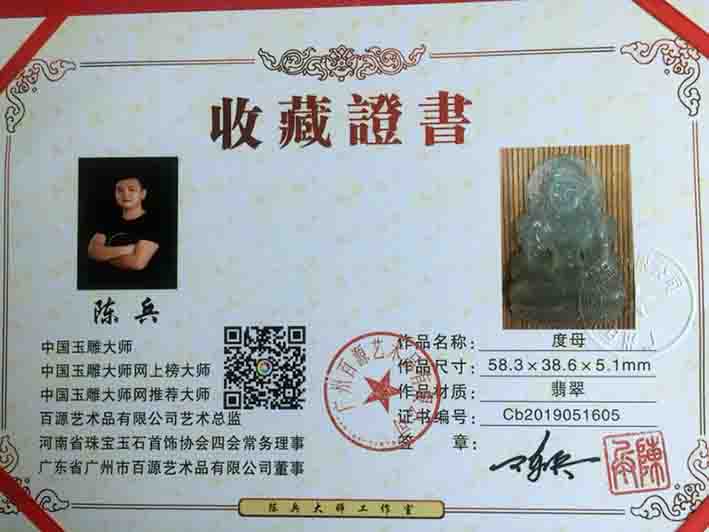 收藏證書
陈兵
中国玉雕大师
中国玉雕大师网上榜大师
中国玉雕大师网推荐大师
百源艺术品有限公司艺术总监
河南省珠宝玉石首饰协会四会常务理事
广东省广州市百源艺术品有限公司董事
作品名称：度母
作品尺寸：58.3×38.6×5.1mm
作品材质：翡翠
证书编号：Cb2019051605
签 章：
陈兵大师工作室